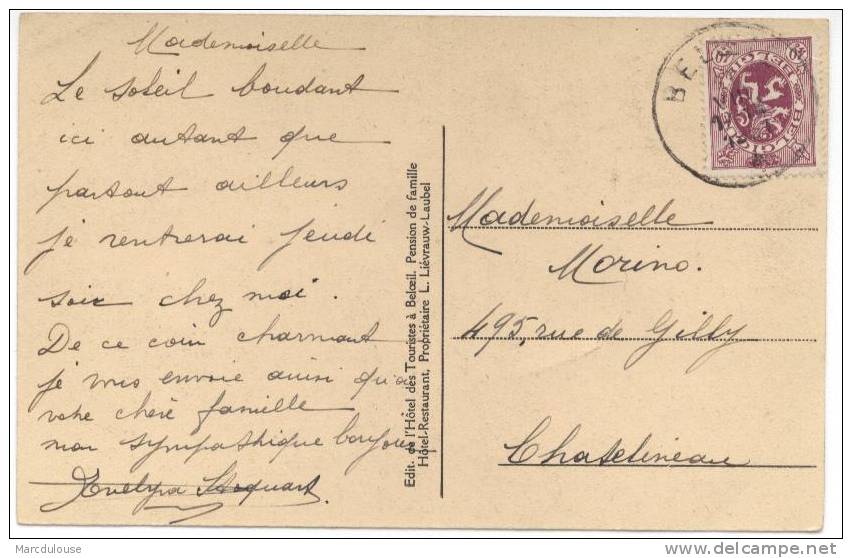 Mademoiselle
Le soleil boudant
ici autant que
partout ailleurs
je rentrerai jeudi
soir chez moi.
De ce coin charmant
je vous envoie ainsi qu'à
votre chère famille
mon sympathique bonjour
Evelyna
Edit. de l'Hôtel des Touristes à Belœil. Pension de famille
Hôtel-Restaurant, Propriétaire L. Liévrauw-Laubel
BELGIE
BELGIQUE
Mademoiselle
Morino.
495, rue de Gilly
Chatelineau
Marcdulouse
delcampe.net